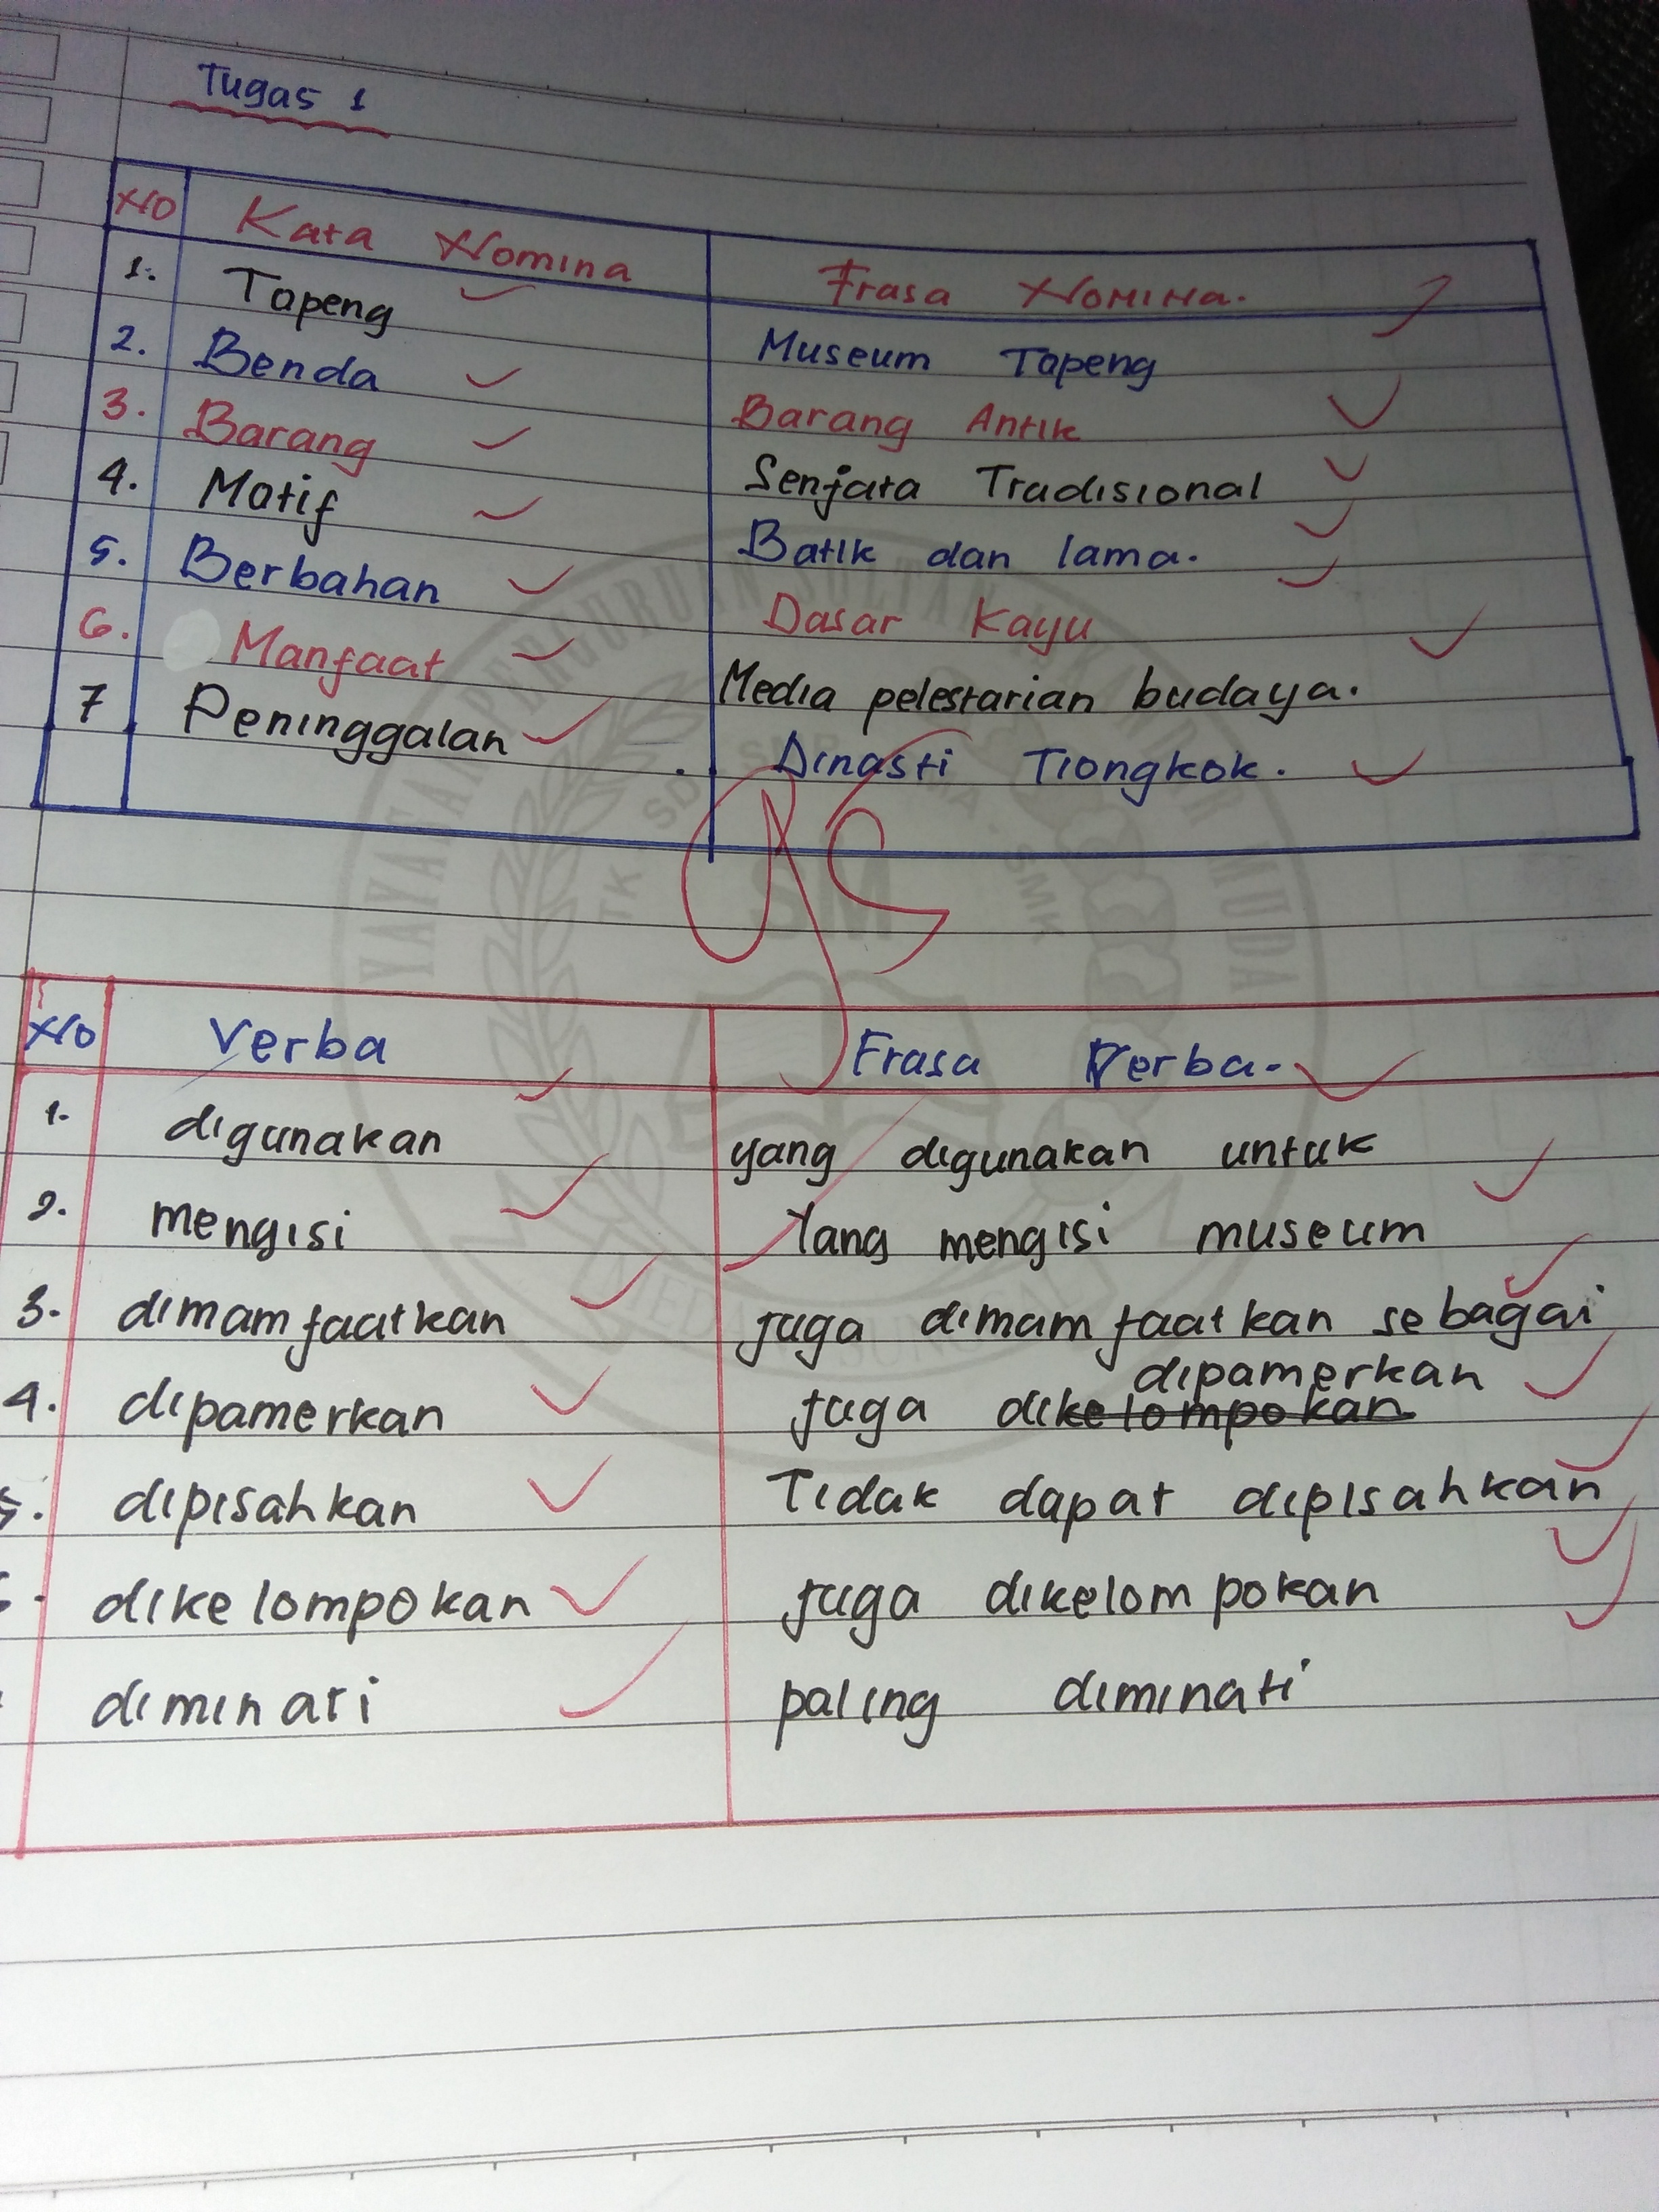 Tugas 1
No Kata Nomina Frasa Nomina.
1. Topeng Museum Topeng
2. Benda Barang Antik
3. Barang Senjata Tradisional
4. Motif Batik dan lama.
5. Berbahan Dasar Kayu
6. Manfaat Media pelestarian budaya.
7 Peninggalan Dinasti Tiongkok.
No Verba Frasa Verba.
1. digunakan yang digunakan untuk
2. mengisi Yang mengisi museum
3. dimamfaatkan juga dimamfaatkan sebagai
4. dipamerkan juga dikelompokan dipamerkan
5. dipisahkan Tidak dapat dipisahkan
dikelompokan juga dikelompokan
diminati paling diminati
YAYASAN PERGURUAN SULTAN ISKANDAR MUDA
SM
SMK